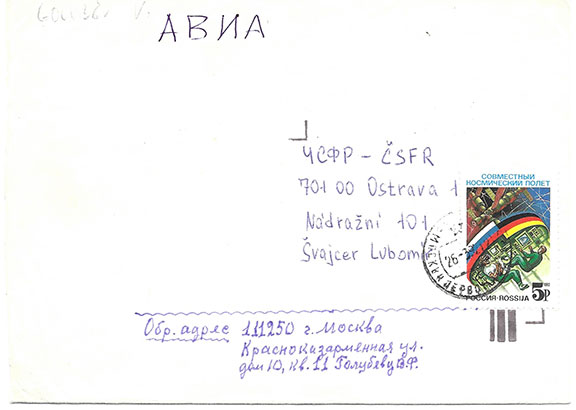 АВИА
ЧСФР - ČSFR
701 00 Ostrava 1
Nádražní 101
Švajcer Lubom
СОВМЕСТНЫЙ
КОСМИЧЕСКИЙ ПОЛЕТ
РОССИЯ·ROSSIJA
5р
Обр. адрес 111250 г. Москва
Краснокизарменная ул.
дом 10, кв. 11 Голубеву В.Ф.